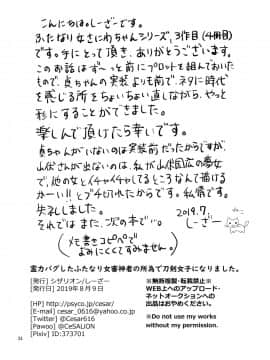 こんにちは。しーざーです。
ふたなり女さにわちゃんシリーズ、3作目(4冊目)
です。手にとって頂き、ありがとうございます。
このお話はずーっと前にプロットを組んでおいた
もので、貞ちゃんの実装より前で、ネタに時代
を感じる所をちょいちょい直しながら、やっと
形にすることができました。
楽しんで頂けたら幸いです。
貞ちゃんがいないのは実装前だったからですが、
山伏さんが出ないのは、私が山伏国広の夢女
で、他の女とイチャイチャしてるところなんて描ける
かーい!!とブチ切れたからです。私情です。
失礼しました。
それではまた、次の本で…。
2019.7.
しーざー
(メモ書きコピペで
よみにくくてすみません。)
霊力バグしたふたなり女審神者の所為で刀剣女子になりました。
[発行] シザリオン/しーざー
[発行日] 2019年8月9日
[HP] http://psyco.jp/cesar/
[E-mail] cesar_0616@yahoo.co.jp
[Twitter] @Cesar616
[Pawoo] @CeSALiON
[Pixiv] ID:373701
※無断複製・転載禁止※
WEB上へのアップロード・
ネットオークションへの
出品はおやめください。
※Do not use my works
without my permission.